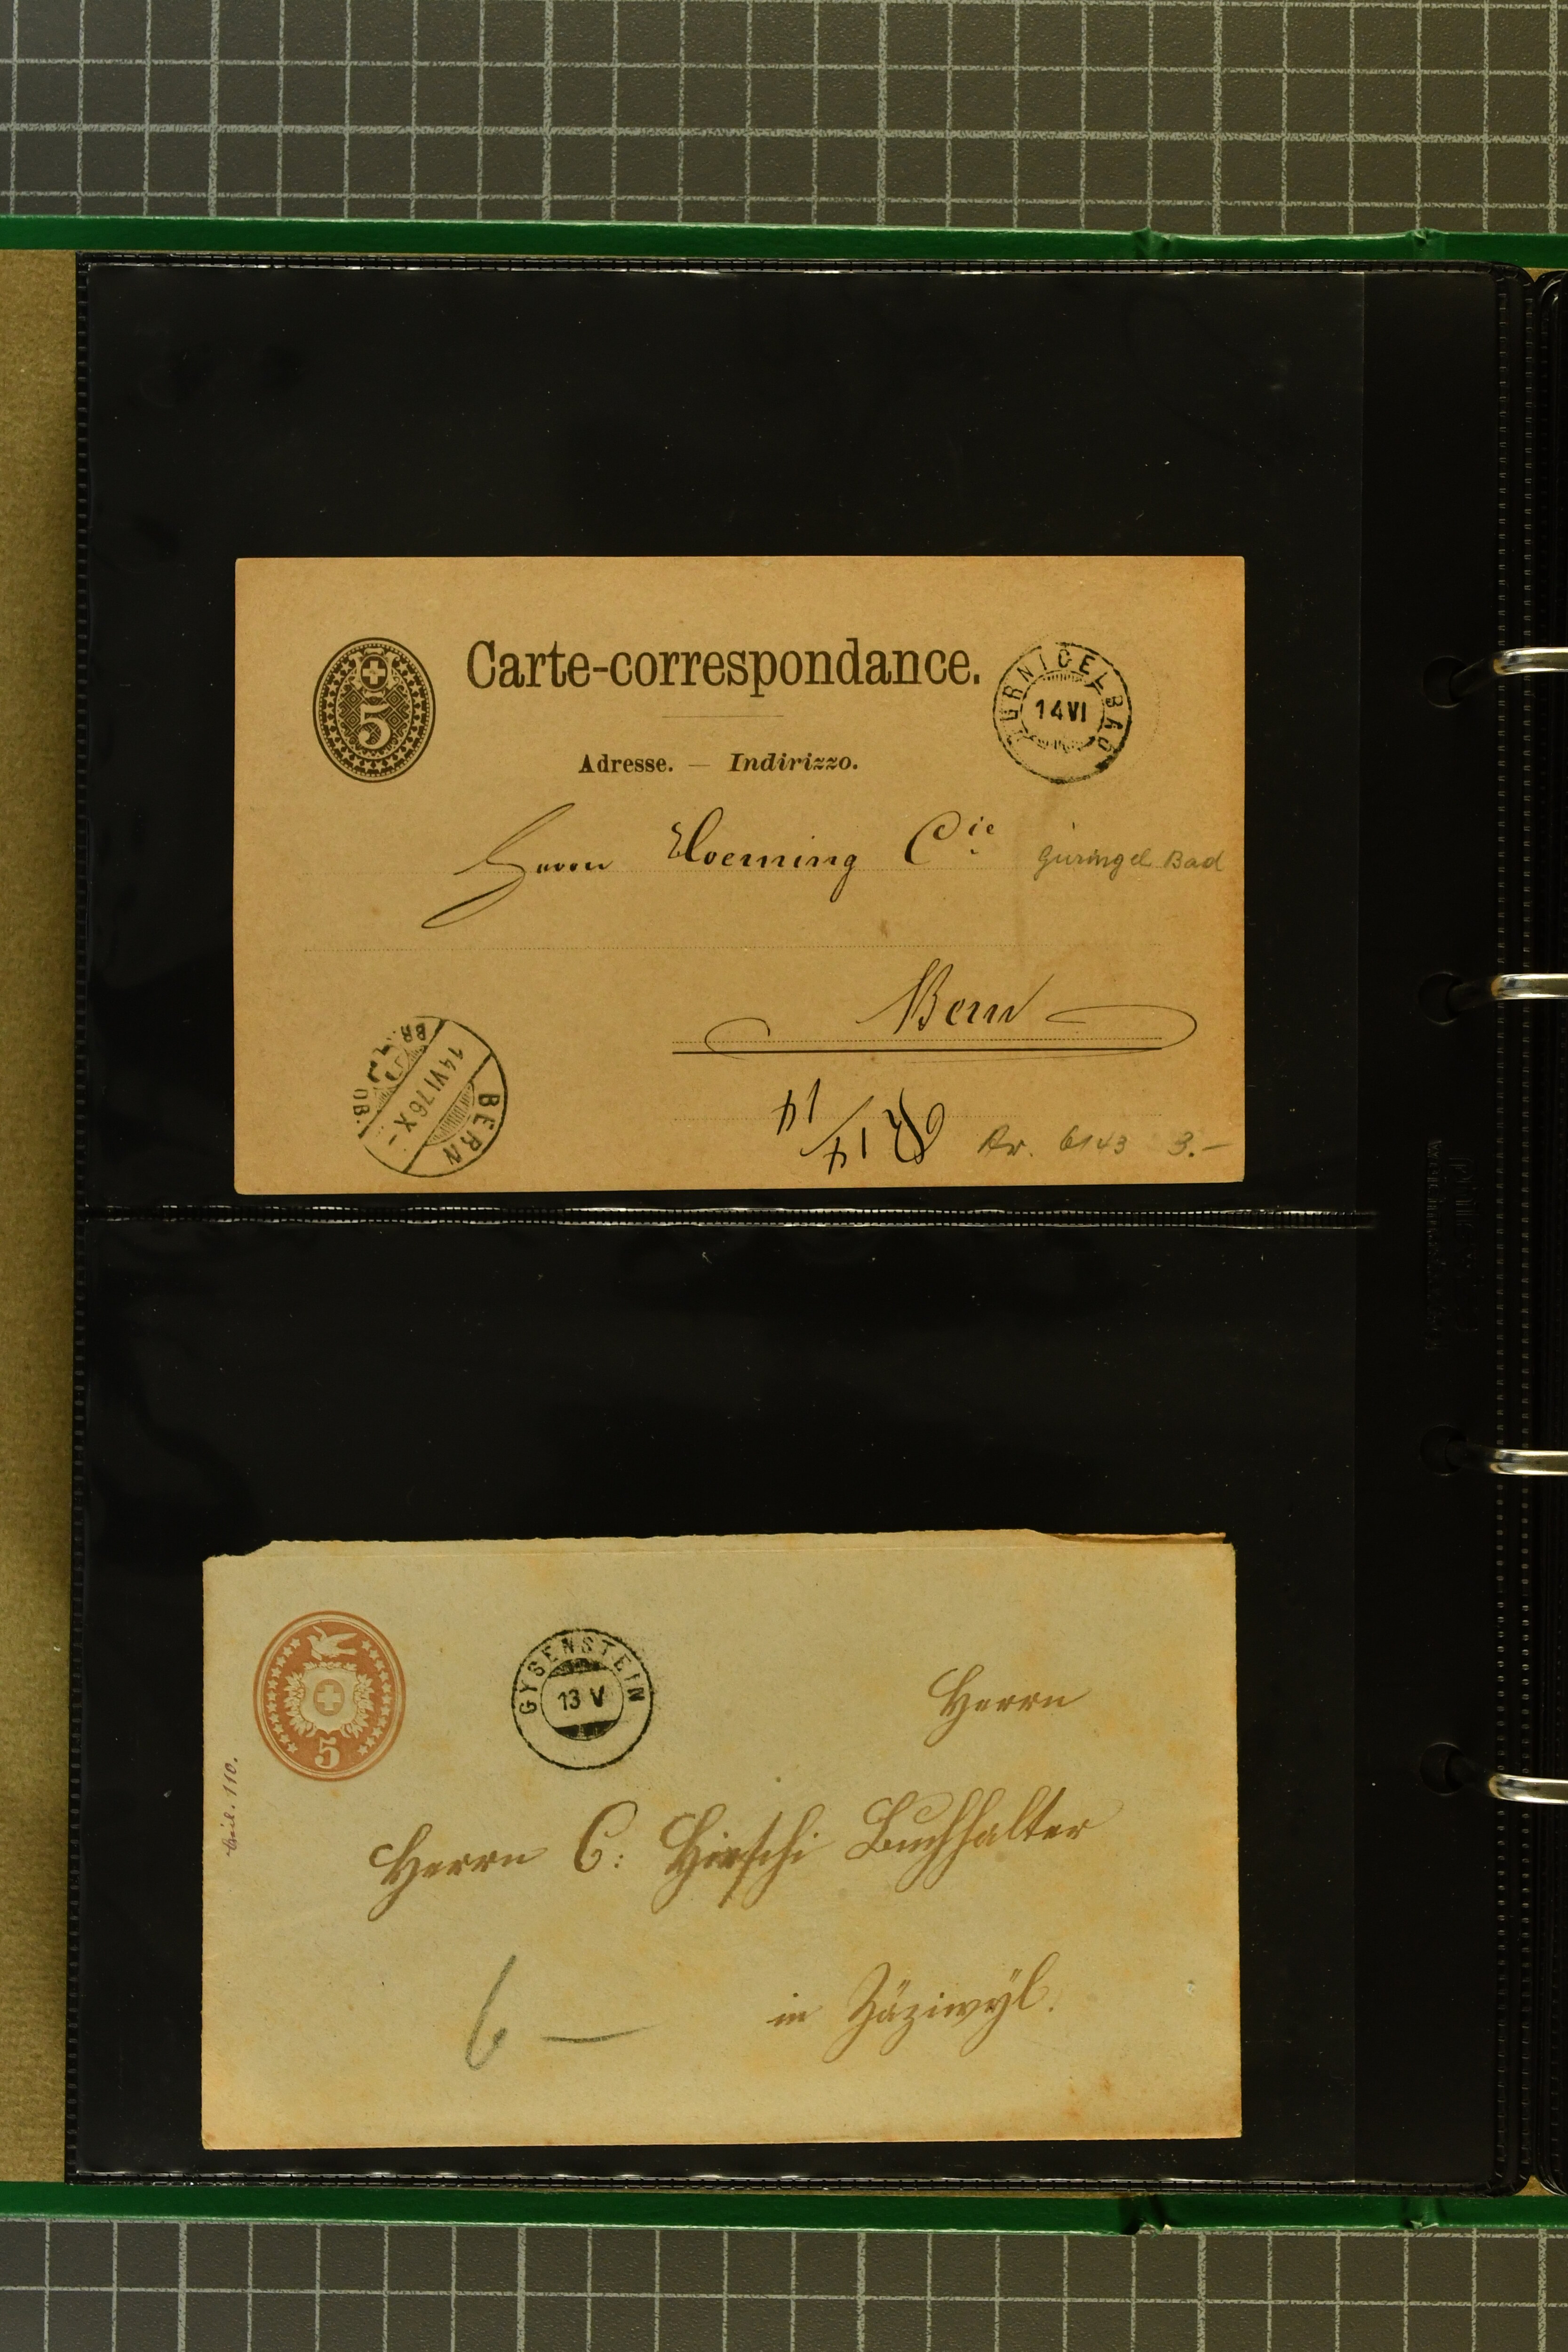 5
Carte-correspondance.
GURNIGELBAD
14 VI
Adresse. — Indirizzo.
Herrn Hoerning Cie
Gurnigel Bad
Bern
BERN
14 VI 76 X -
R 14/4 14
6143 3.-
GYSENSTEIN
13 V
5
110.
Herrn
Herrn C: Hirschi Buchhalter
in Zäziwÿl.
6 —